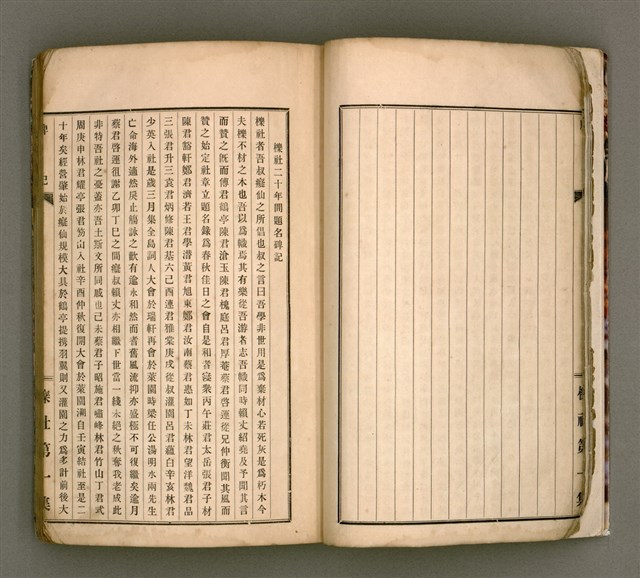 櫟社二十年間題名碑記
櫟社者吾叔癡仙之所倡也叔之言曰吾學非世用是爲棄材心若死灰是爲朽木今
夫櫟不材之木也吾以爲幟焉其有樂從吾游者志吾幟同時賴丈紹堯及予聞其言
而贊之旣而傅君鶴亭陳君滄玉陳君槐庭呂君厚菴蔡君啓運從兄仲衡聞其風而
贊之始定社章立題名錄爲春秋佳日之會自是和者寖衆丙午莊君太岳張君子材
陳君豁軒鄭君濟若王君學潛黃君旭東鄭君汝南蔡君惠如丁未林君望洋魏君品
三張君升三袁君炳修陳君基六己酉連君雅棠庚戌從叔灌園呂君蘊白辛亥林君
少英入社是歲三月集全島詞人大會於瑞軒再會於萊園時梁任公湯明水兩先生
亡命海外適然戾止觴詠之歡有逾永和然而耆舊風流抑亦盛極不可復繼矣逾月
蔡君啓運徂謝乙卯丁巳之間癡叔賴丈亦相繼下世當一綫永絕之秋奪我老成此
非特吾社之憂蓋亦吾土斯文所同戚也己未蔡君子昭施君嘯峰林君竹山丁君式
周庚申林君耀亭張君篤山入社辛酉仲秋復開大會於萊園溯自壬寅結社至是二
十年矣經營肇始於癡仙規模大具於鶴亭提携羽翼則又灌園之力爲多計前後大
碑記
櫟社第一集
櫟社第一集